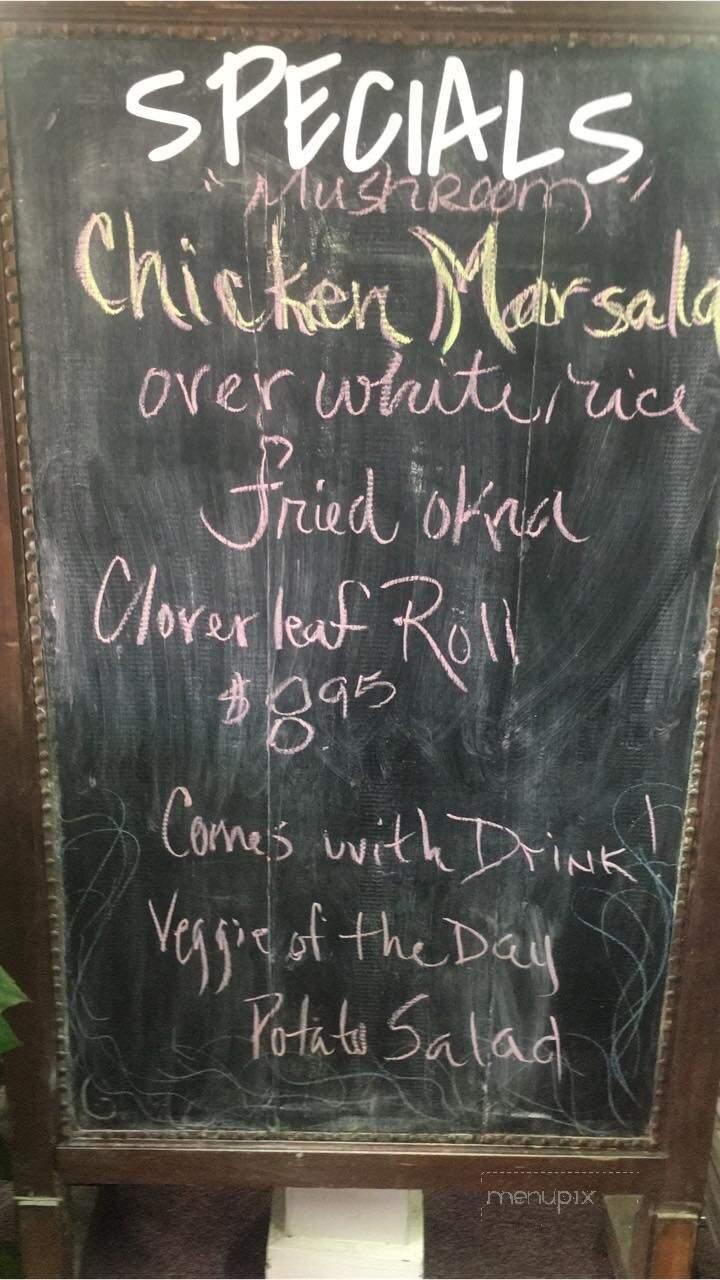 SPECIALS
"Mushroom"
Chicken Marsala
over white rice
fried okra
Cloverleaf Roll
$895
Comes with Drink!
Veggie of the Day
Potato Salad
menupix